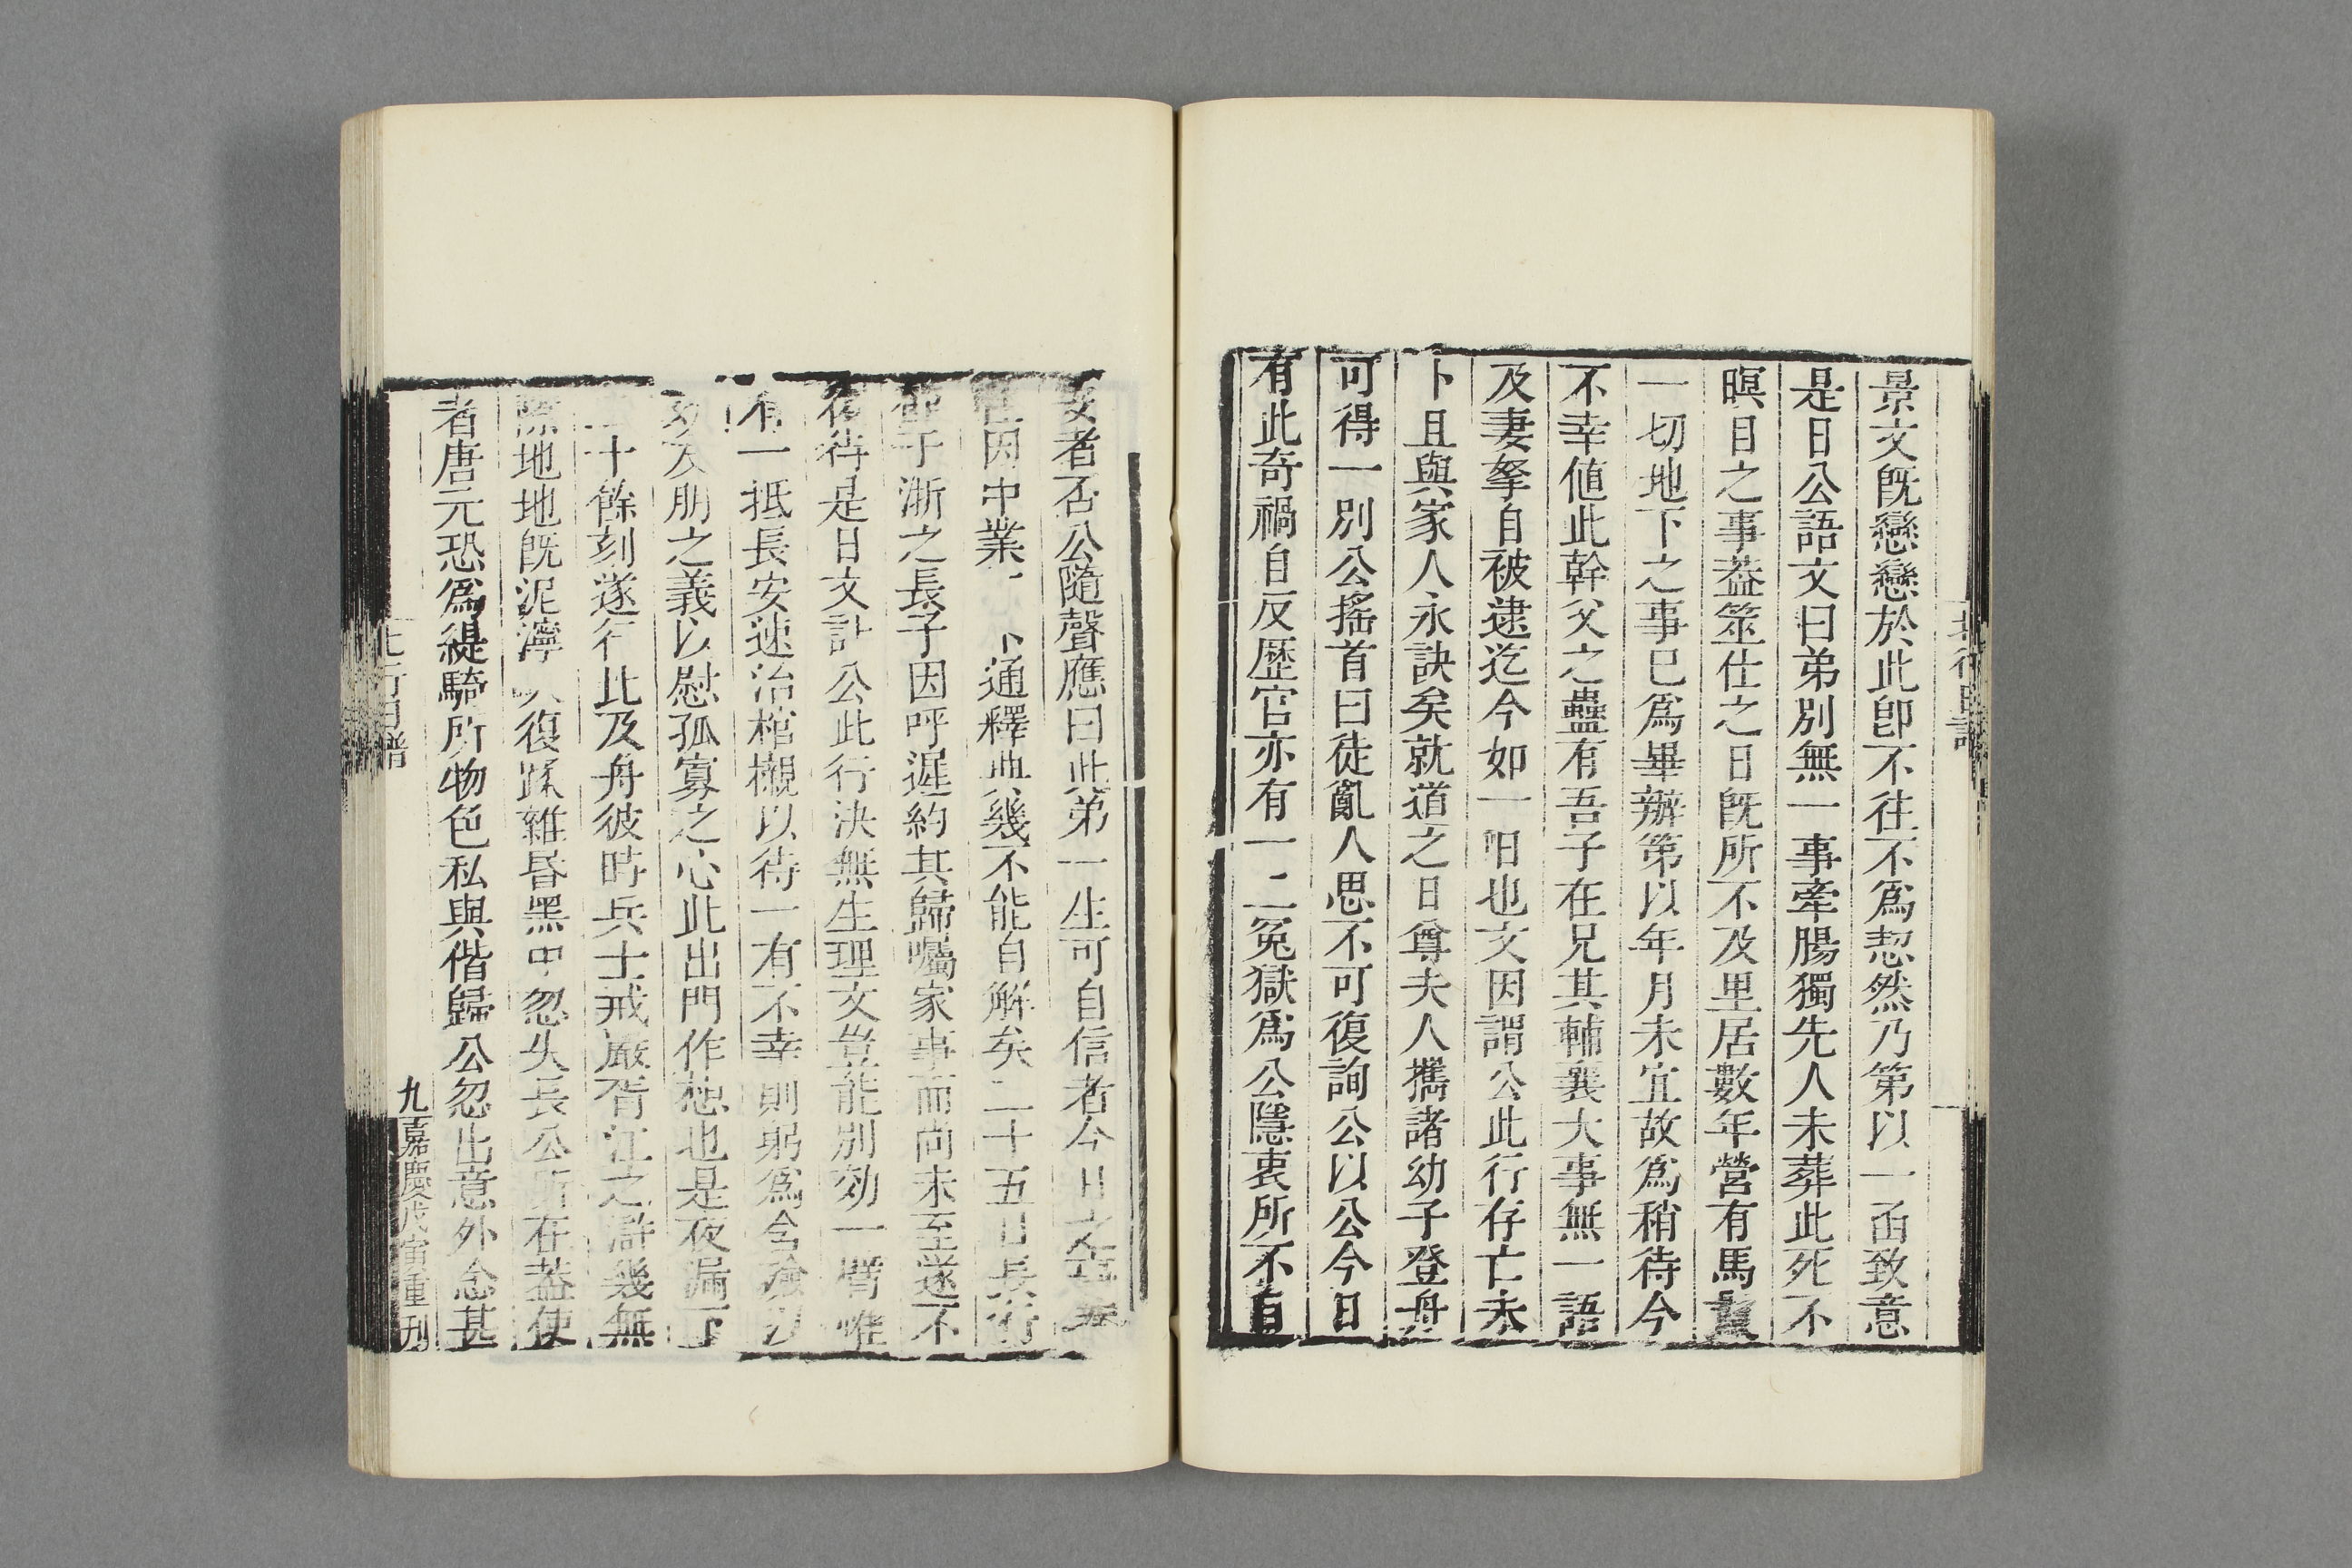 景文旣戀戀於此卽不往不爲恝然乃第以一函致意
是日公語文曰弟別無一事牽腸獨先人未葬此死不
瞑目之事葢筮仕之日旣所不及里居數年營有馬鬣
一切地下之事已爲畢辦第以年月未宜故爲稍待今
不幸值此幹父之蠱有吾子在兄其輔襄大事無一語
及妻孥自被逮迄今如一日也文因謂公此行存亡未
卜且與家人永訣矣就道之日尊夫人攜諸幼子登舟
可得一別公搖首曰徒亂人思不可復詢公以公今日
有此奇禍自反歷官亦有一二冤獄爲公隱衷所不自
安者否公隨聲應曰此弟一生可自信者今日之
因中業 通釋典幾不能自解矣二十五日長行
子漸之長子因呼遲約其歸囑家事而尚未至遂不
待是日文計公此行決無生理文豈能別効一臂惟
有一抵長安速治棺櫬以待一有不幸則躬爲含殮以
友朋之義以慰孤寡之心此出門作想也是夜漏下
十餘刻遂行此及舟彼時兵士戒嚴胥江之滸幾無
隙地地旣泥濘人復蹂雜昏黑中忽失長公所在葢使
者唐元恐爲緹騎所物色私與偕歸公忽出意外念甚
北行日譜
九
嘉慶戊寅重刊